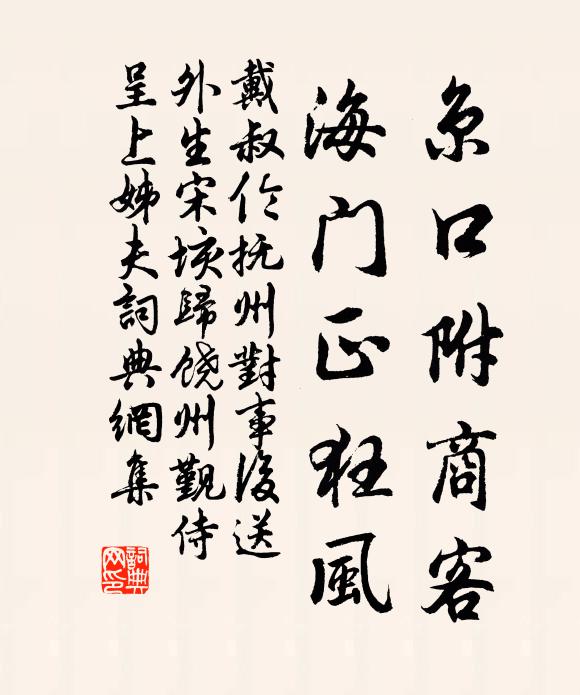 京口附商客
海门正狂風
戴叔伦抚州對事後送
外生宋垓歸饶州觐侍
呈上姊夫詞典網集
詞典网印